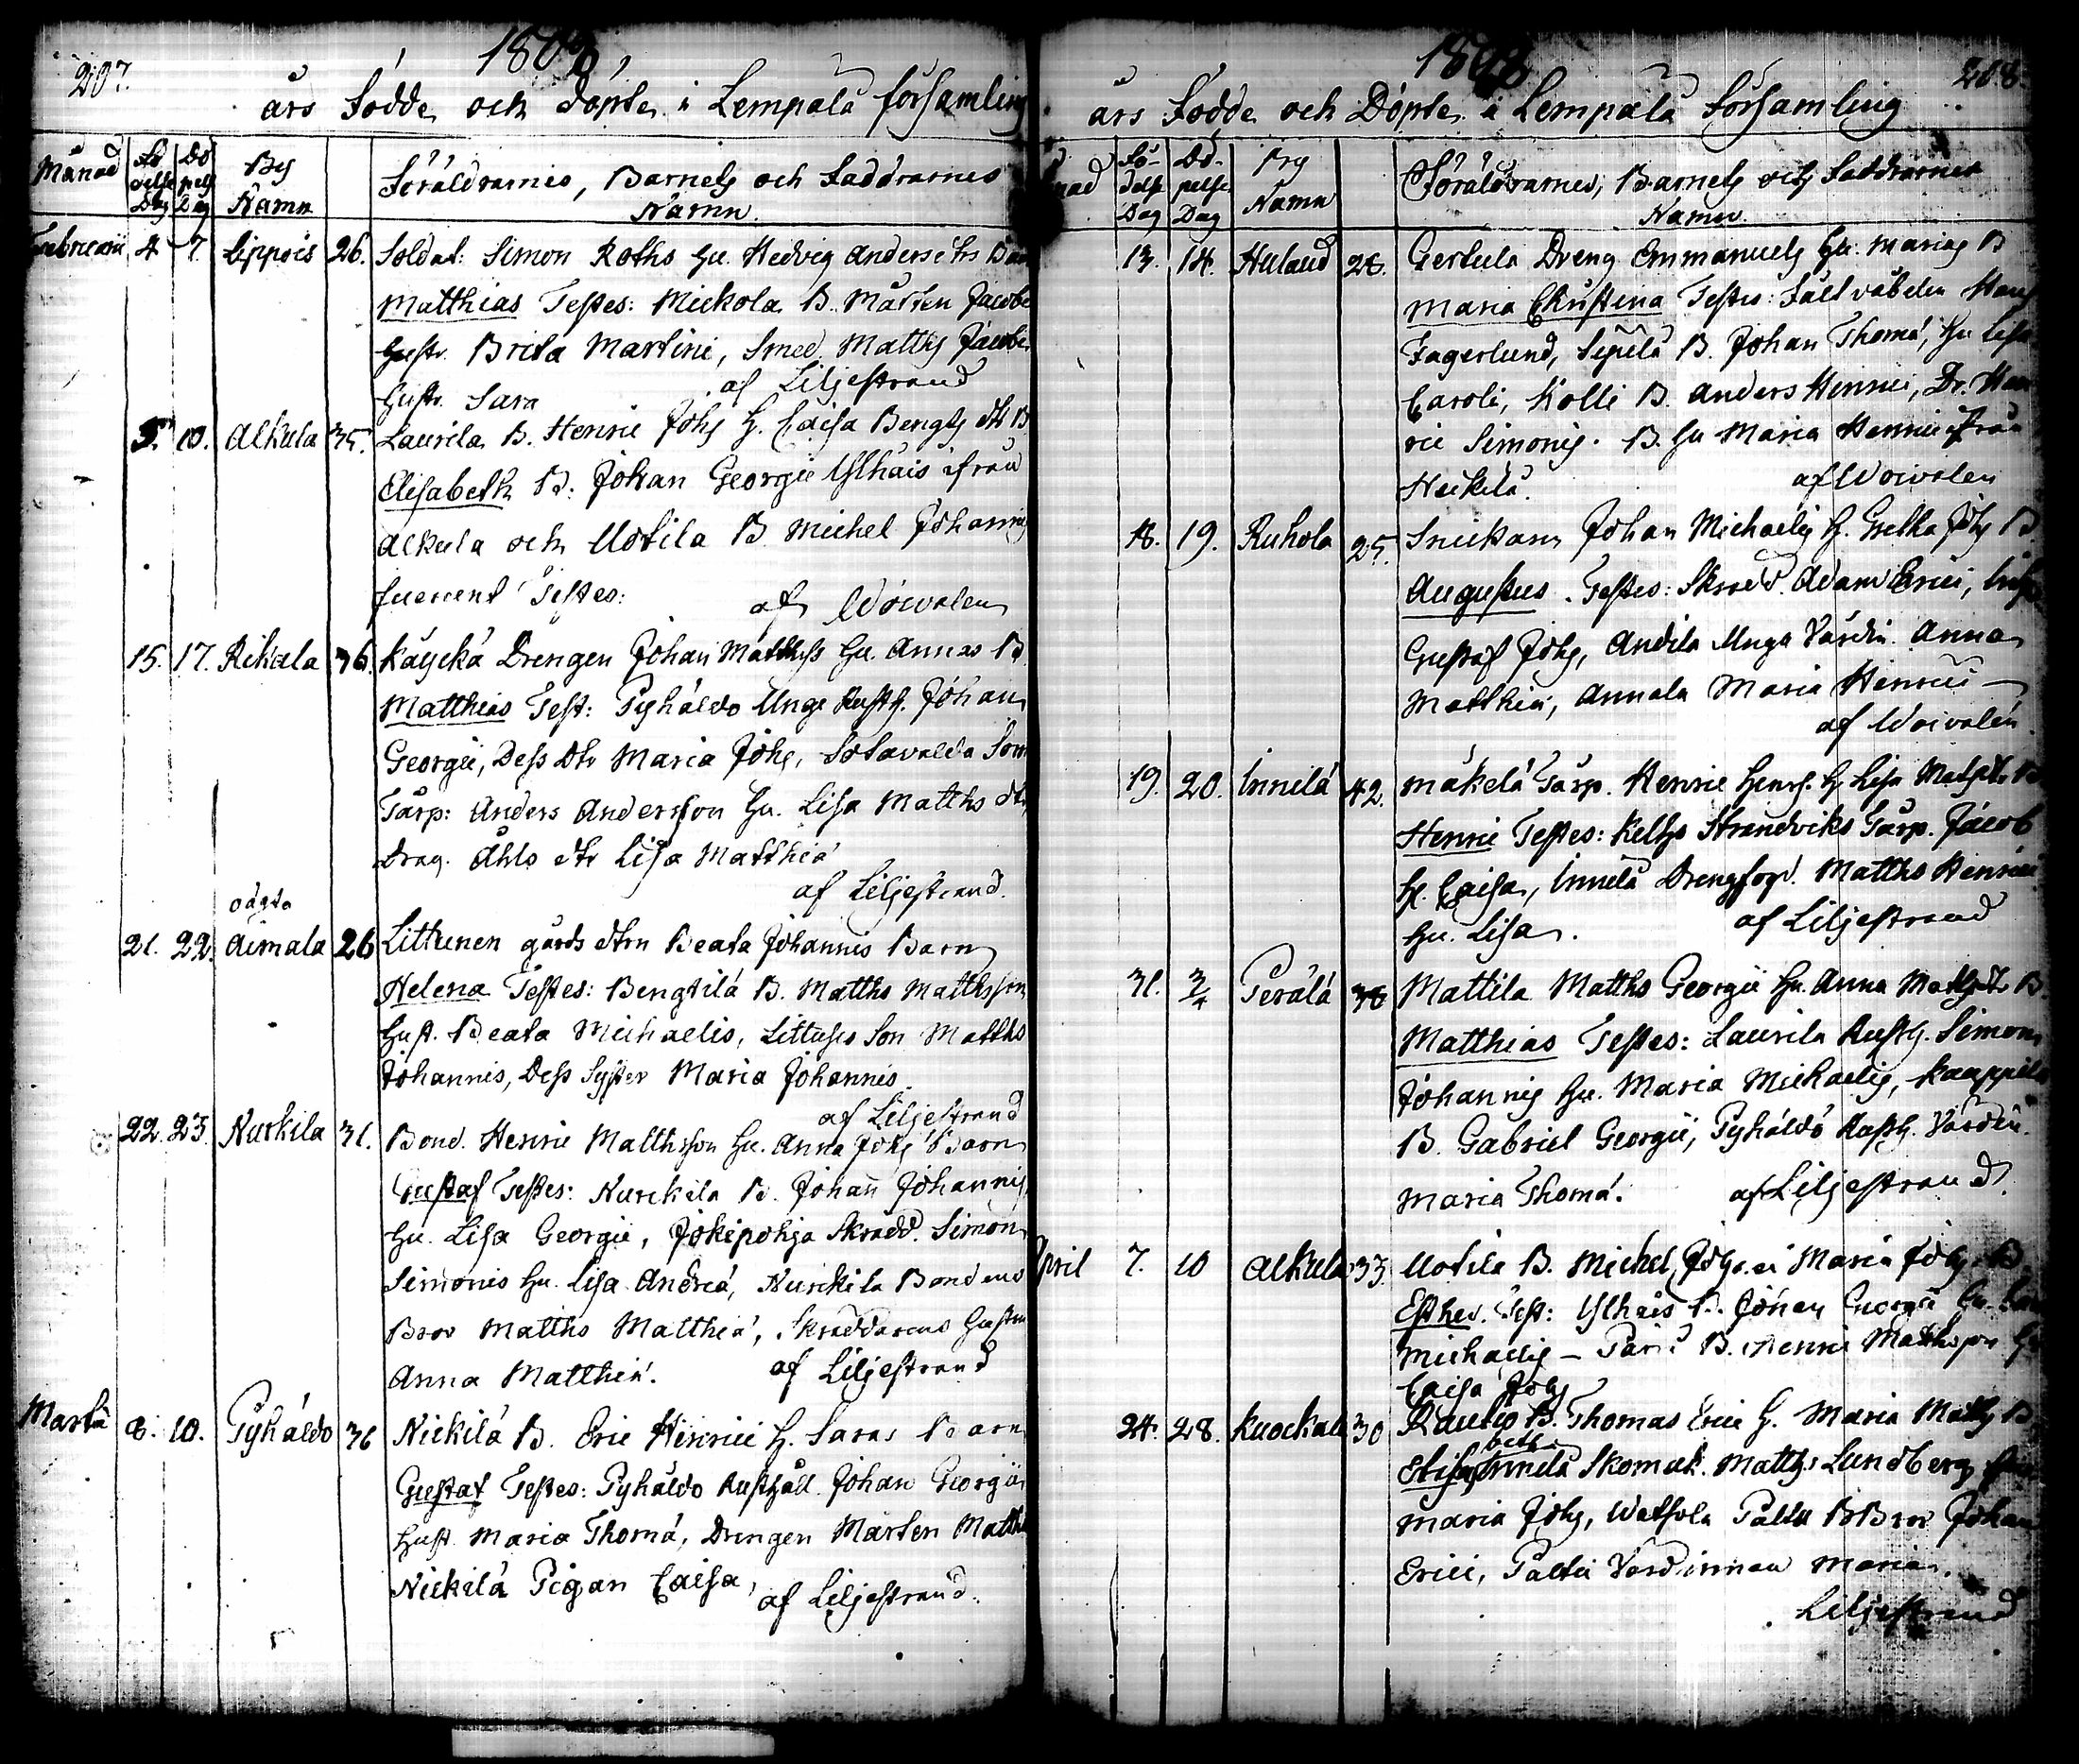 207.
1808,
års Födde och döpte i Lempälä församling
Månad Fö delse Dag Dö pels Dag By Namn Föräldrarnes, Barnets och Faddrarnes Namn
Februarii 4 7. Lippois 26. Soldat: Simon Roths hu. Hedvig Anders dtrs Barn
Matthias Testes: Mickola B. Mårten Jacobi
hustr. Brita Martini, Smed Matths Jacobi
hustr. Sara af Liljestrand
5. 10. Alkula 35. Laurila B. Henric Johs h. Caisa Bengts dtr B
Elisabeth B. Johan Georgii Ylhäis ifrån
Alkula och Uotila B. Michel Johannis
fuerunt Testes: af Woivalen
15. 17. Rikala 36. Käyckä Drengen Johan Matthss hu. Annas B
Matthias Test: Pyhäldö Unge Rusth. Johan
Georgii, Dess dtr Maria Johs, Sotavalda Som
Tårp: Anders Andersson hu. Lisa Matths dtr
Drag. Åhls dtr Lisa Matthiä
af Liljestrand.
odgta
21. 22. Aimala 26 Littunen gårds dtrn Beata Johannis Barn
Helena Testes: Bengtilä B. Matths Matthsson
hust. Beata Michaelis, Littuses Son Matths
Johannis, Dess Syster Maria Johannis.
af Liljestrand
22. 23. Nurkila 31. Bond. Henric Matthsson hu. Anna Johs Barn
Gustaf Testes: Nurckila B. Johan Johannis
hu. Lisa Georgii, Jokipohja Skrädd. Simon
Simonis hu. Lisa Andreä, Nurckila Bondens
Bror Matths Matthiä, Skräddarens hustru
Anna Matthiä. af Liljestrand
Martii 8. 10. Pyhäldö 36 Nickilä B. Eric Henrici h. Saras Barn
Gustaf Testes: Pyhäldö Rusthåll. Johan Georgii
hust. Maria Thomä, Drengen Mårten Matths
Nickilä Pigan Caisa, af Liljestrand.
208.
1808
års Födde och Döpte i Lempälä Församling
Fö- delse Dag Dö- pelse Dag By Namn Föräldrarnes, Barnets och Faddrarnes Namn
13. 14. Hulaud 28. Gertula Dreng Emmanuels hu. Marias B
Maria Christina Testes: Fältväbelen
Fagerlund, Sipilä B. Johan Thomä, hu Lisa
Caroli, Kolli B. Anders Henrici, Dr. Hen
ric Simonis. B. hu Maria Henrici ifrån
Heikilä. af Woivalen
18. 19. Ruhola 25. Snickaren Johan Michaelis h. Gretha Johs B.
Augustus. Testes: Skrädd. Adam Erici,
Gustaf Johs, Andila Unga Värdin. Anna
Matthiä, Annala Maria Henrici
af Woivalen.
19. 20. Innilä 42. Mäkelä Tårp. Henric Henrs. h Lisa Mats dtr B
Henric Testes: Strandviks Tårp. Jacob
h. Caisa, Innilä Drengfogd. Matths Henrici
hu. Lisa. af Liljestrand
31. 3/4 Perälä 38 Mattila Matths Georgii hu. Anna Mats dtr B.
Matthias Testes: Laurila Rusth. Simon
Johannis hu. Maria Michaelis, Kauppila
B. Gabriel Georgii, Pyhäldö Rusth. Värdin.
Maria Thomä. af Liljestrand
April 7. 10 Alkula 33 Uotila B. Michel Johs. Maria Johs. B
Esther. Test: Ylhäis B. Johan Georgii hu.
Michaelis — B. Henric Matthsson hu
Caisa Johs
24. 28. Kuockala 30 Rautio B. Thomas Erici h. Maria Matths B
Elisabeth Innilä Skomak. Matths Lundberg
Maria Johs, Bror Johan
Erici, Värdinnan Maria.
Liljestrand